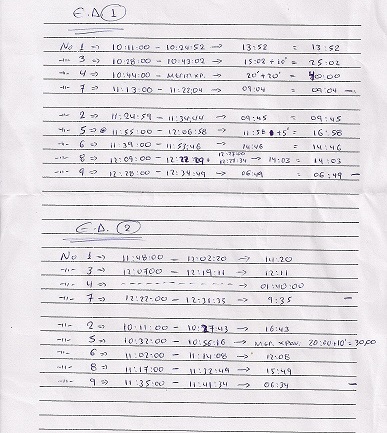 Ε.Δ. 1
Νο 1 => 10:11:00 - 10:24:52 -> 13:52 = 13:52
-"- 3 => 10:28:00 - 10:43:02 -> 15:02 + 10' = 25:02
-"- 4 => 10:44:00 - Μεγ. χρ. -> 20' + 20' = 40:00
-"- 7 => 11:13:00 - 11:22:04 -> 09:04 = 09:04 -
-"- 2 => 11:24:59 - 11:34:44 -> 09:45 = 09:45
-"- 5 => 11:55:00 - 12:06:58 -> 11:58 + 5' = 16:58
-"- 6 => 11:39:00 - 11:53:46 -> 14:46 = 14:46
-"- 8 => 12:09:00 - -> 14:03 = 14:03
-"- 9 => 12:28:00 - 12:34:49 -> 06:49 = 06:49 -
Ε.Δ. 2
Νο 1 => 11:48:00 - 12:02:20 -> 14:20
-"- 3 => 12:07:00 - 12:19:11 -> 12:11
-"- 4 => - - - - - - - - -> 01:40:00
-"- 7 => 12:22:00 - 12:31:35 -> 9:35 -
-"- 2 => 10:11:00 - 10:27:43 -> 16:43
-"- 5 => 10:32:00 - 10:56:16 -> Μεγ. χρον. 20:00 + 10' = 30:00
-"- 6 => 11:02:00 - 11:14:08 -> 12:08
-"- 8 => 11:17:00 - 11:32:49 -> 15:49
-"- 9 => 11:35:00 - 11:41:34 -> 06:34 -